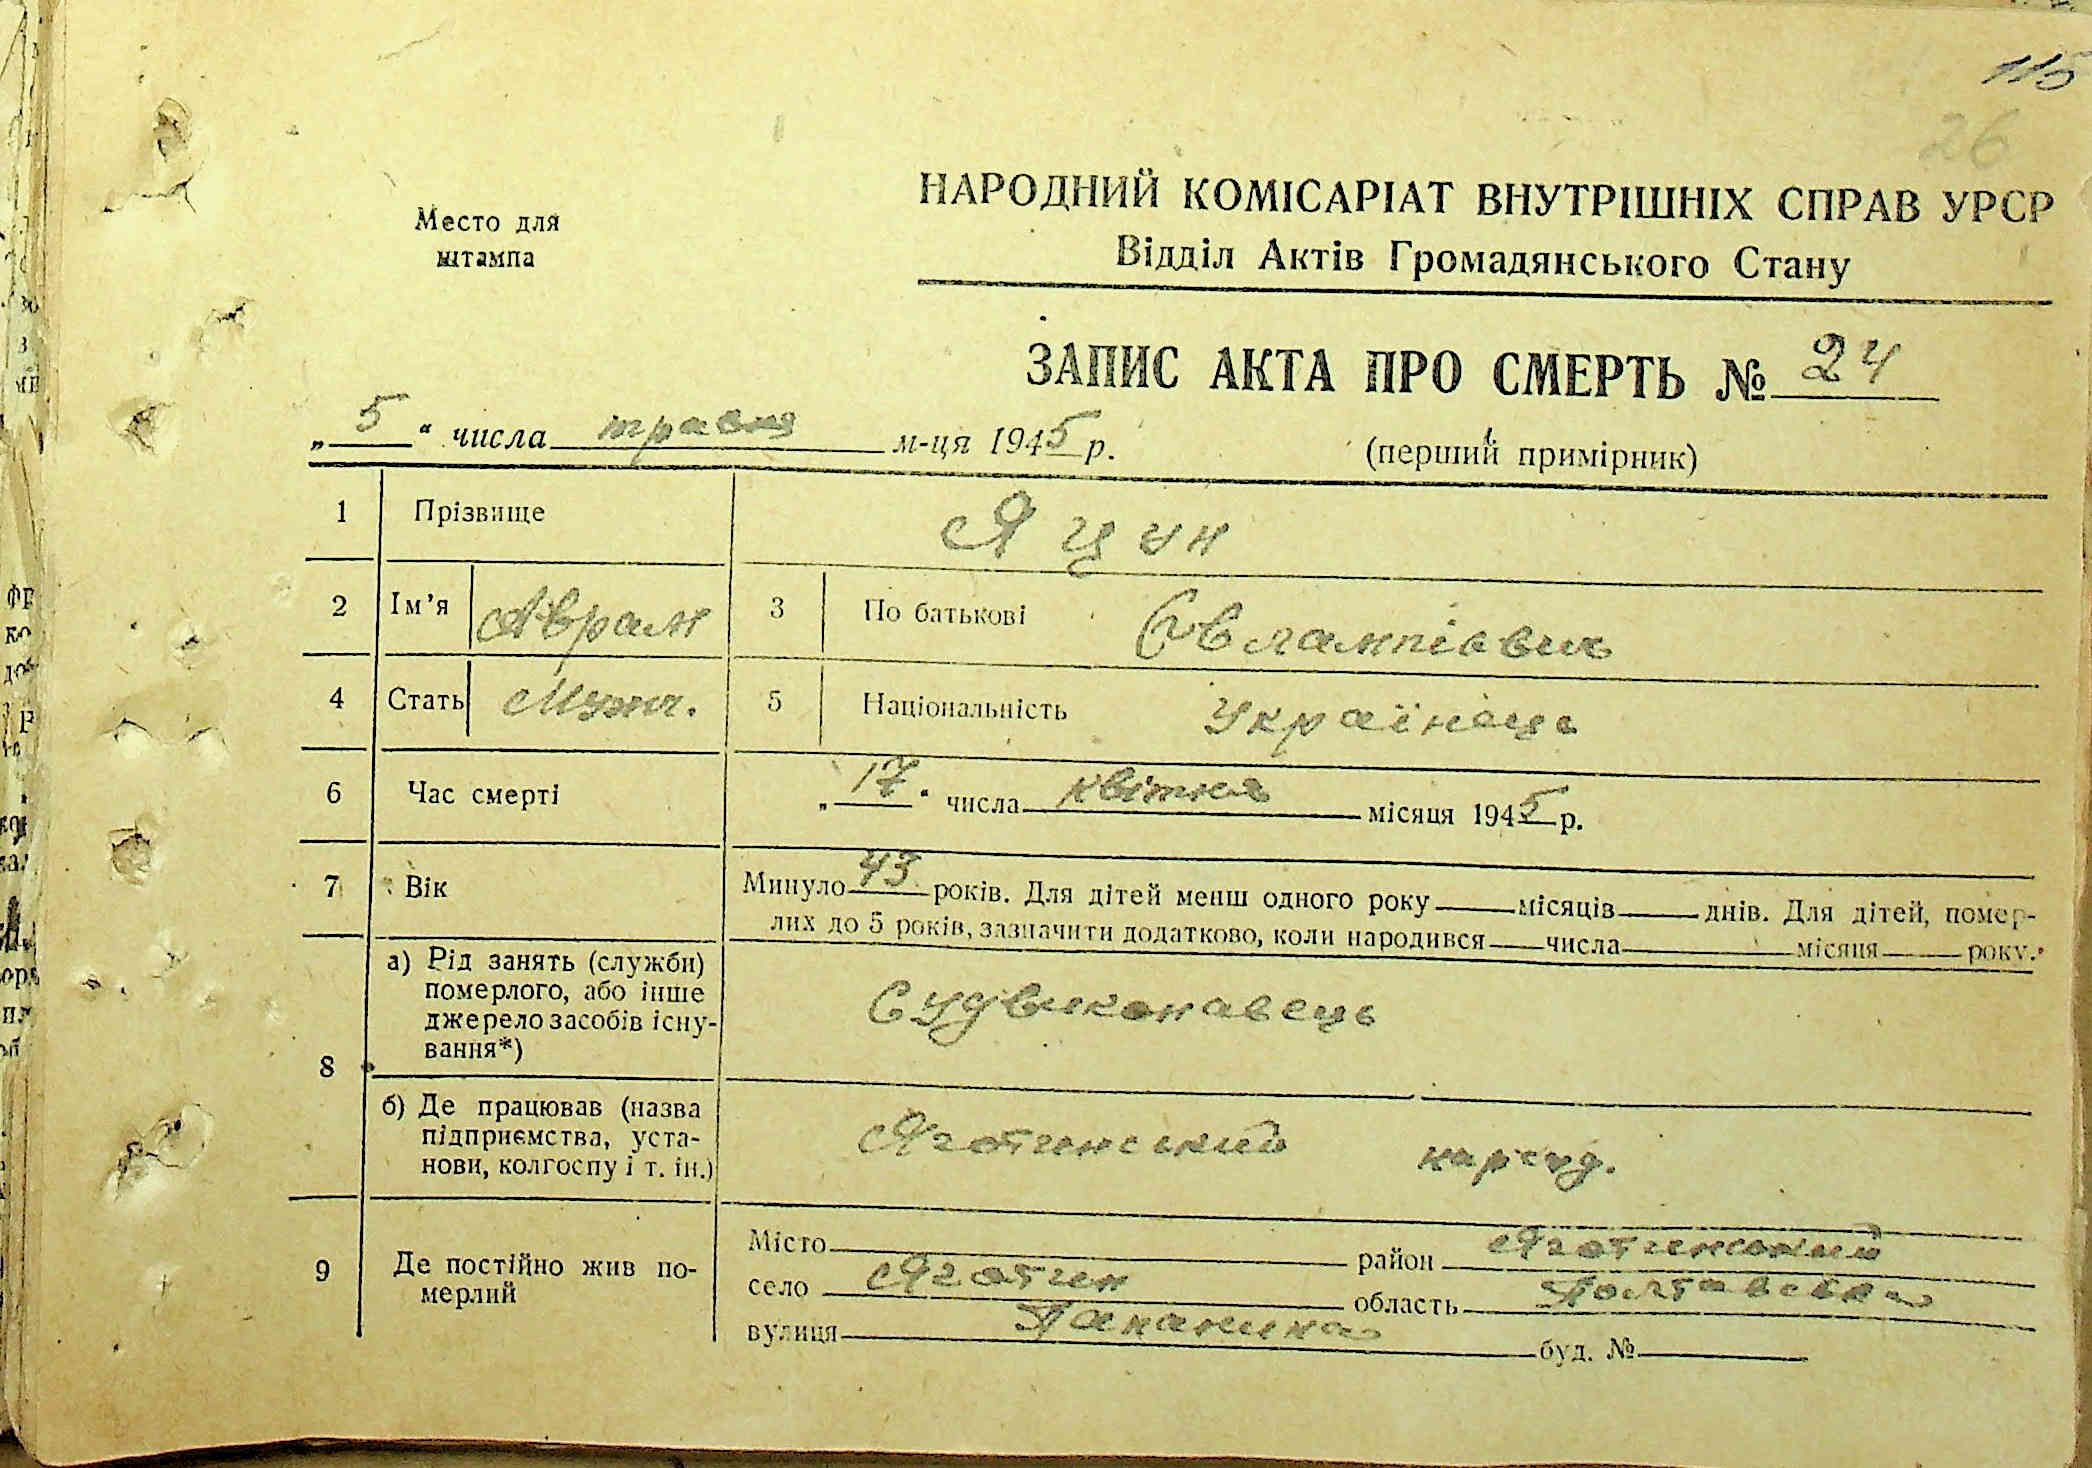 115
26
Место для
штампа
НАРОДНИЙ КОМІСАРІАТ ВНУТРІШНІХ СПРАВ УРСР
Відділ Актів Громадянського Стану
ЗАПИС АКТА ПРО СМЕРТЬ № 24
„ 5 “ числа травня м-ця 1945 р.
(перший примірник)
1 Прізвище Яцун
2 Ім’я Аврам 3 По батькові Євлампієвич
4 Стать Мужч. 5 Національність Українець
6 Час смерті „ 17 “ числа квітня місяця 1945 р.
7 Вік Минуло 43 років. Для дітей менш одного року місяців днів. Для дітей, помер-
лих до 5 років, зазначити додатково, коли народився числа місяця року.
8 а) Рід занять (служби)
померлого, або інше
джерело засобів існу-
вання*)
Судвиконавець
б) Де працював (назва
підприємства, уста-
нови, колгоспу і т. ін.)
Яготинський нарсуд.
9 Де постійно жив по-
мерлий
Місто район Яготинський
село Яготин область Полтавська
вулиця буд. №